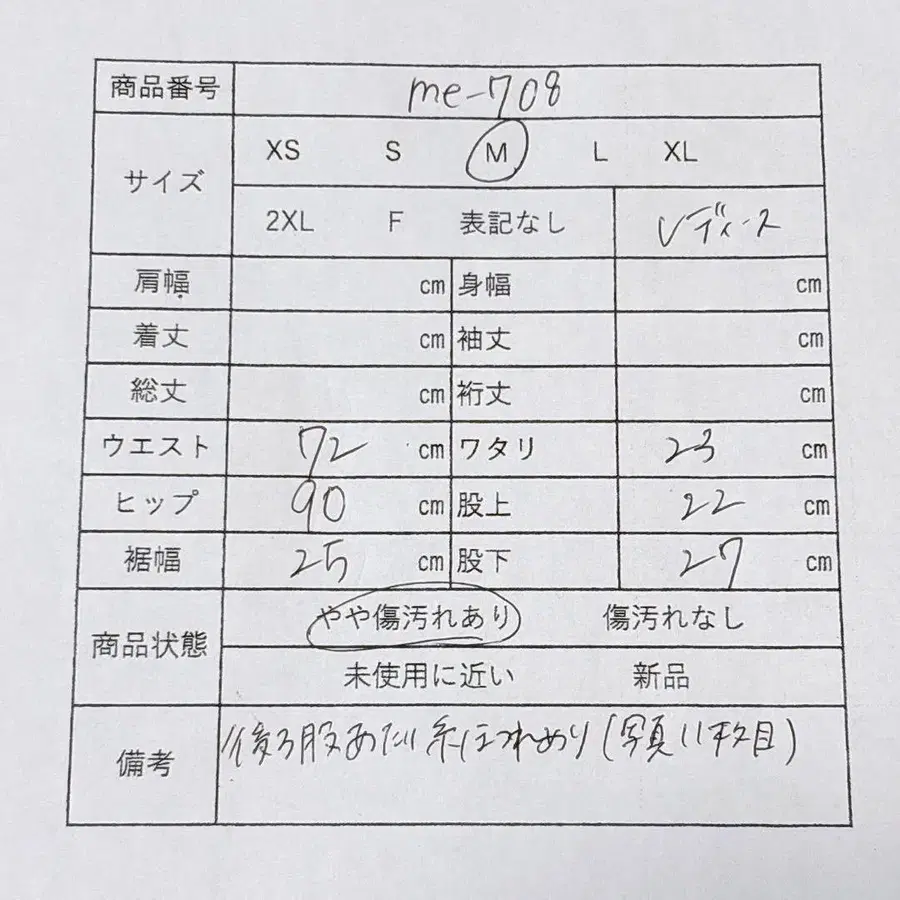 商品番号 me-708
サイズ XS S M L XL
2XL F 表記なし レディース
肩幅 cm 身幅 cm
着丈 cm 袖丈 cm
総丈 cm 裄丈 cm
ウエスト 72 cm ワタリ 23 cm
ヒップ 90 cm 股上 22 cm
裾幅 25 cm 股下 27 cm
商品状態 やや傷汚れあり 傷汚れなし
未使用に近い 新品
備考 後ろ股あたり糸ほつれあり(写真11枚目)